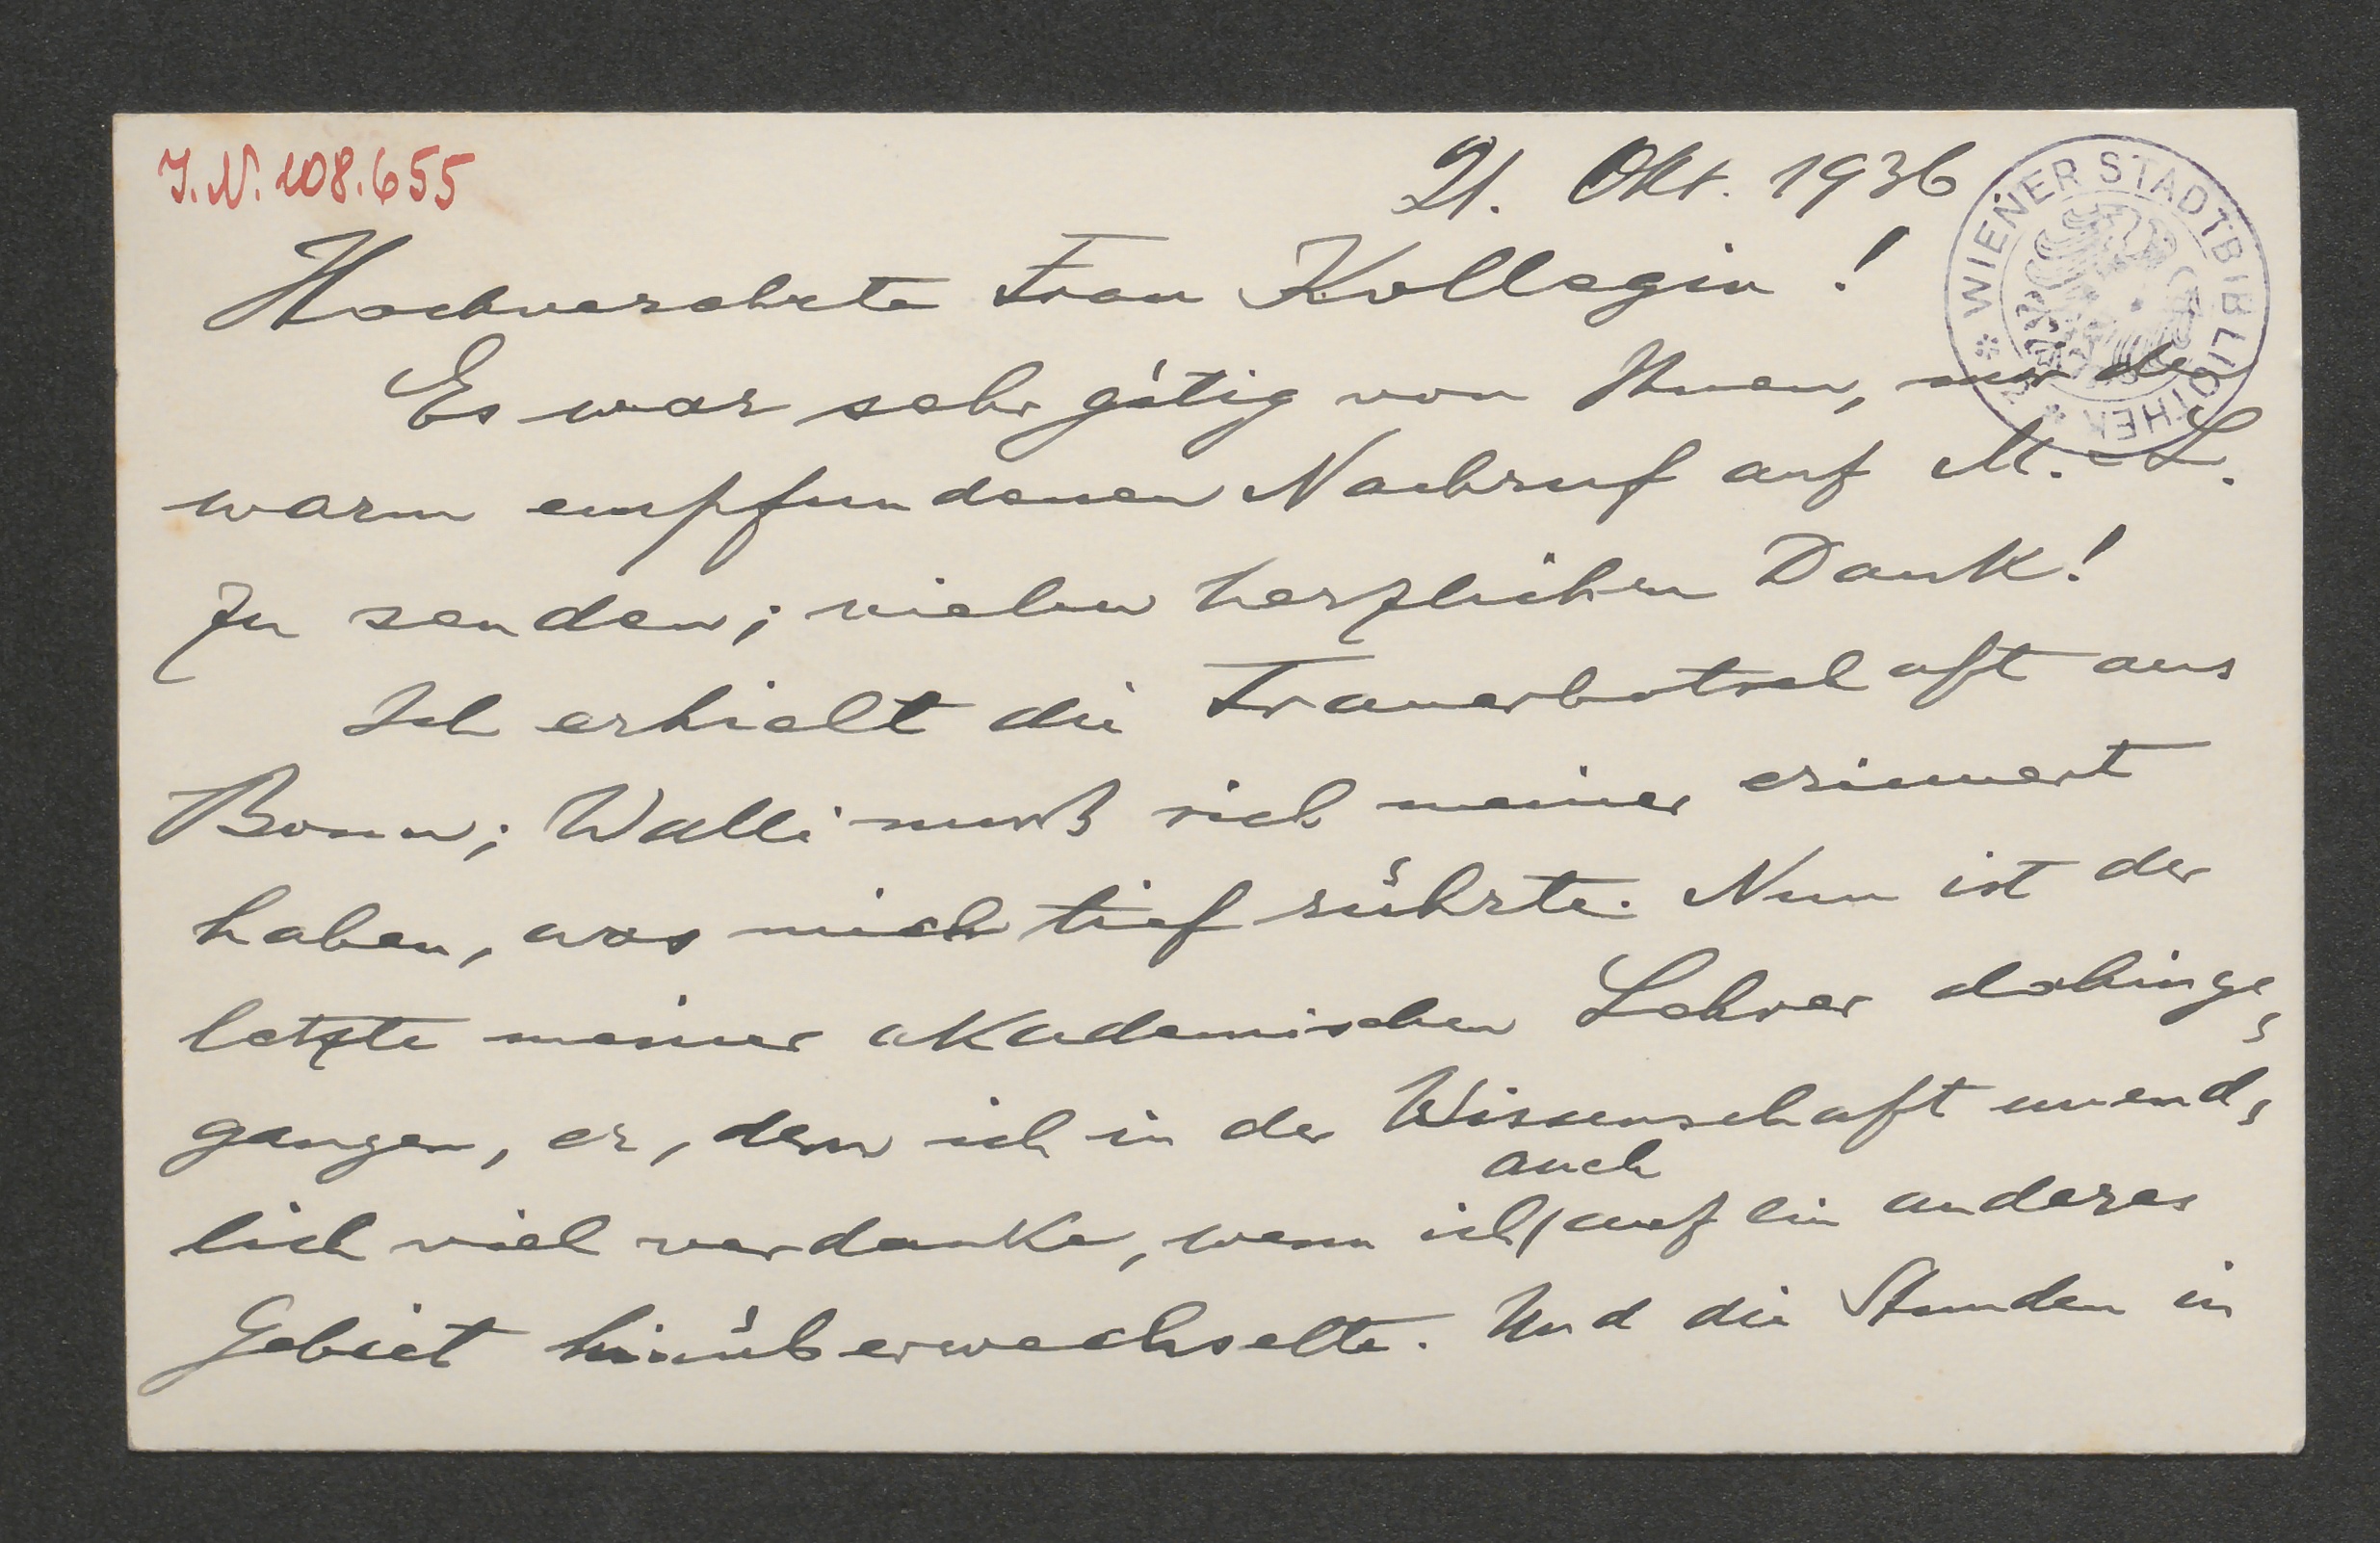 J.N. 108.655
21. Okt. 1936
WIENER STADTBIBLIOTHEK
Hochverehrte Frau Kollegin!
Es war sehr gütig von Ihnen, mir den
warm empfundenen Nachruf auf M. L.
zu senden; vielen herzlichen Dank!
Ich erhielt die Trauerbotschaft aus
Bonn; Walli muß sich meiner erinnert
haben, was mich tief rührte. Nun ist der
letzte meiner akademischen Lehrer dahinge-
gangen, er, dem ich in der Wissenschaft unend-
auch
lich viel verdanke, wenn ich/auf ein anderes
Gebiet hinüberwechselte. Und die Stunden in